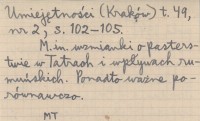 Umiejętności (Kraków) t. 49,
nr 2, s. 102-105.
M.in. wzmianki o paster-
stwie w Tatrach i wpływach ru-
muńskich. Ponadto ważne po-
równawczo.
MT